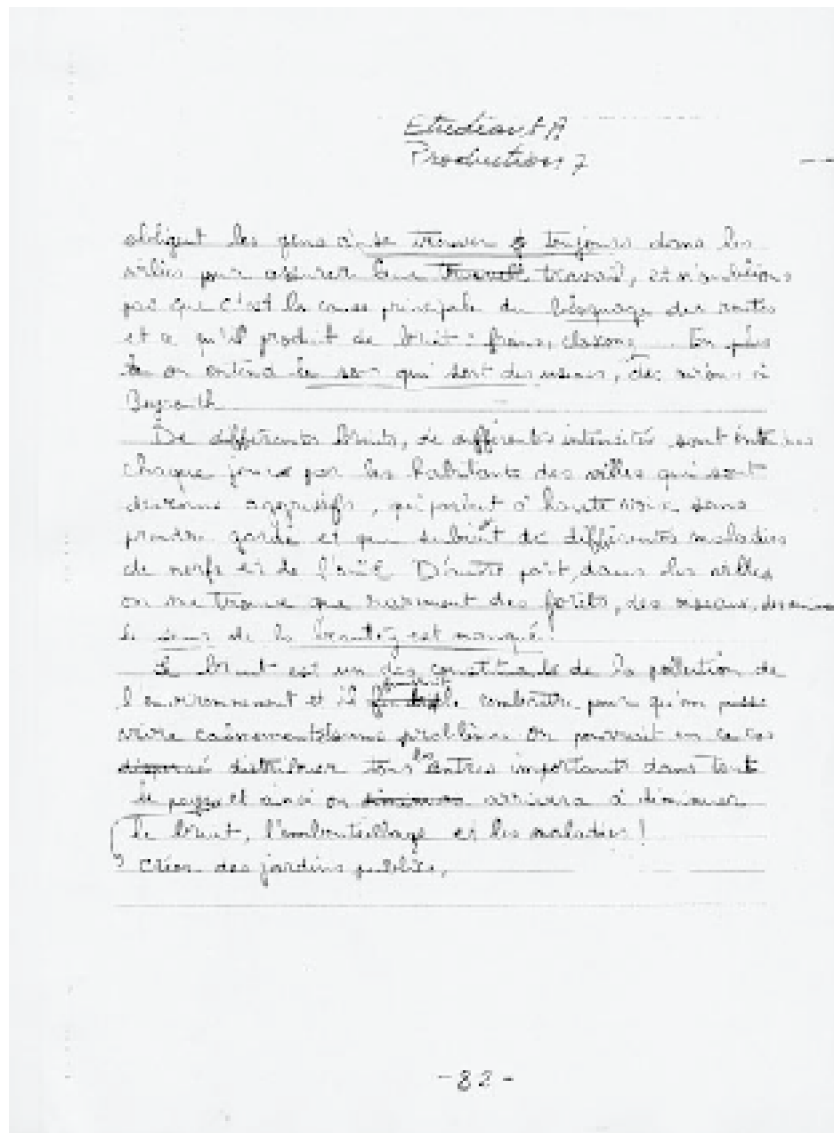 Etudiant A
Production 7
obligent les gens à se trouver toujours dans les
villes pour assurer leur travail, et n'oublions
pas que c'est la cause principale du bloquage des routes
et ce qu'il produit de bruit : freins, claxons... En plus
on entend le son qui sort des usines, des avions à
Beyrouth
De différents bruits, de différentes intensités sont
chaque jour par les habitants des villes qui sont
agressifs, qui parlent à haute voix sans
prendre garde et qui subient de différentes maladies
de nerfs et de l'ouïe. D'autre part, dans les villes
on ne trouve que rarment des forêts, des oiseaux,
le sens de la beautez est manqué!
Le bruit est un des constituants de la pollution de
l'environnement et il faudrait le combattre pour qu'on puisse
vivre calmement sans problème. On pourrait en ce cas
distribuer tous les centres importants dans tout
le pays et ainsi on arrivera à diminuer
le bruit, l'embouteillage et les maladies!
Créer des jardins publics,
-82-